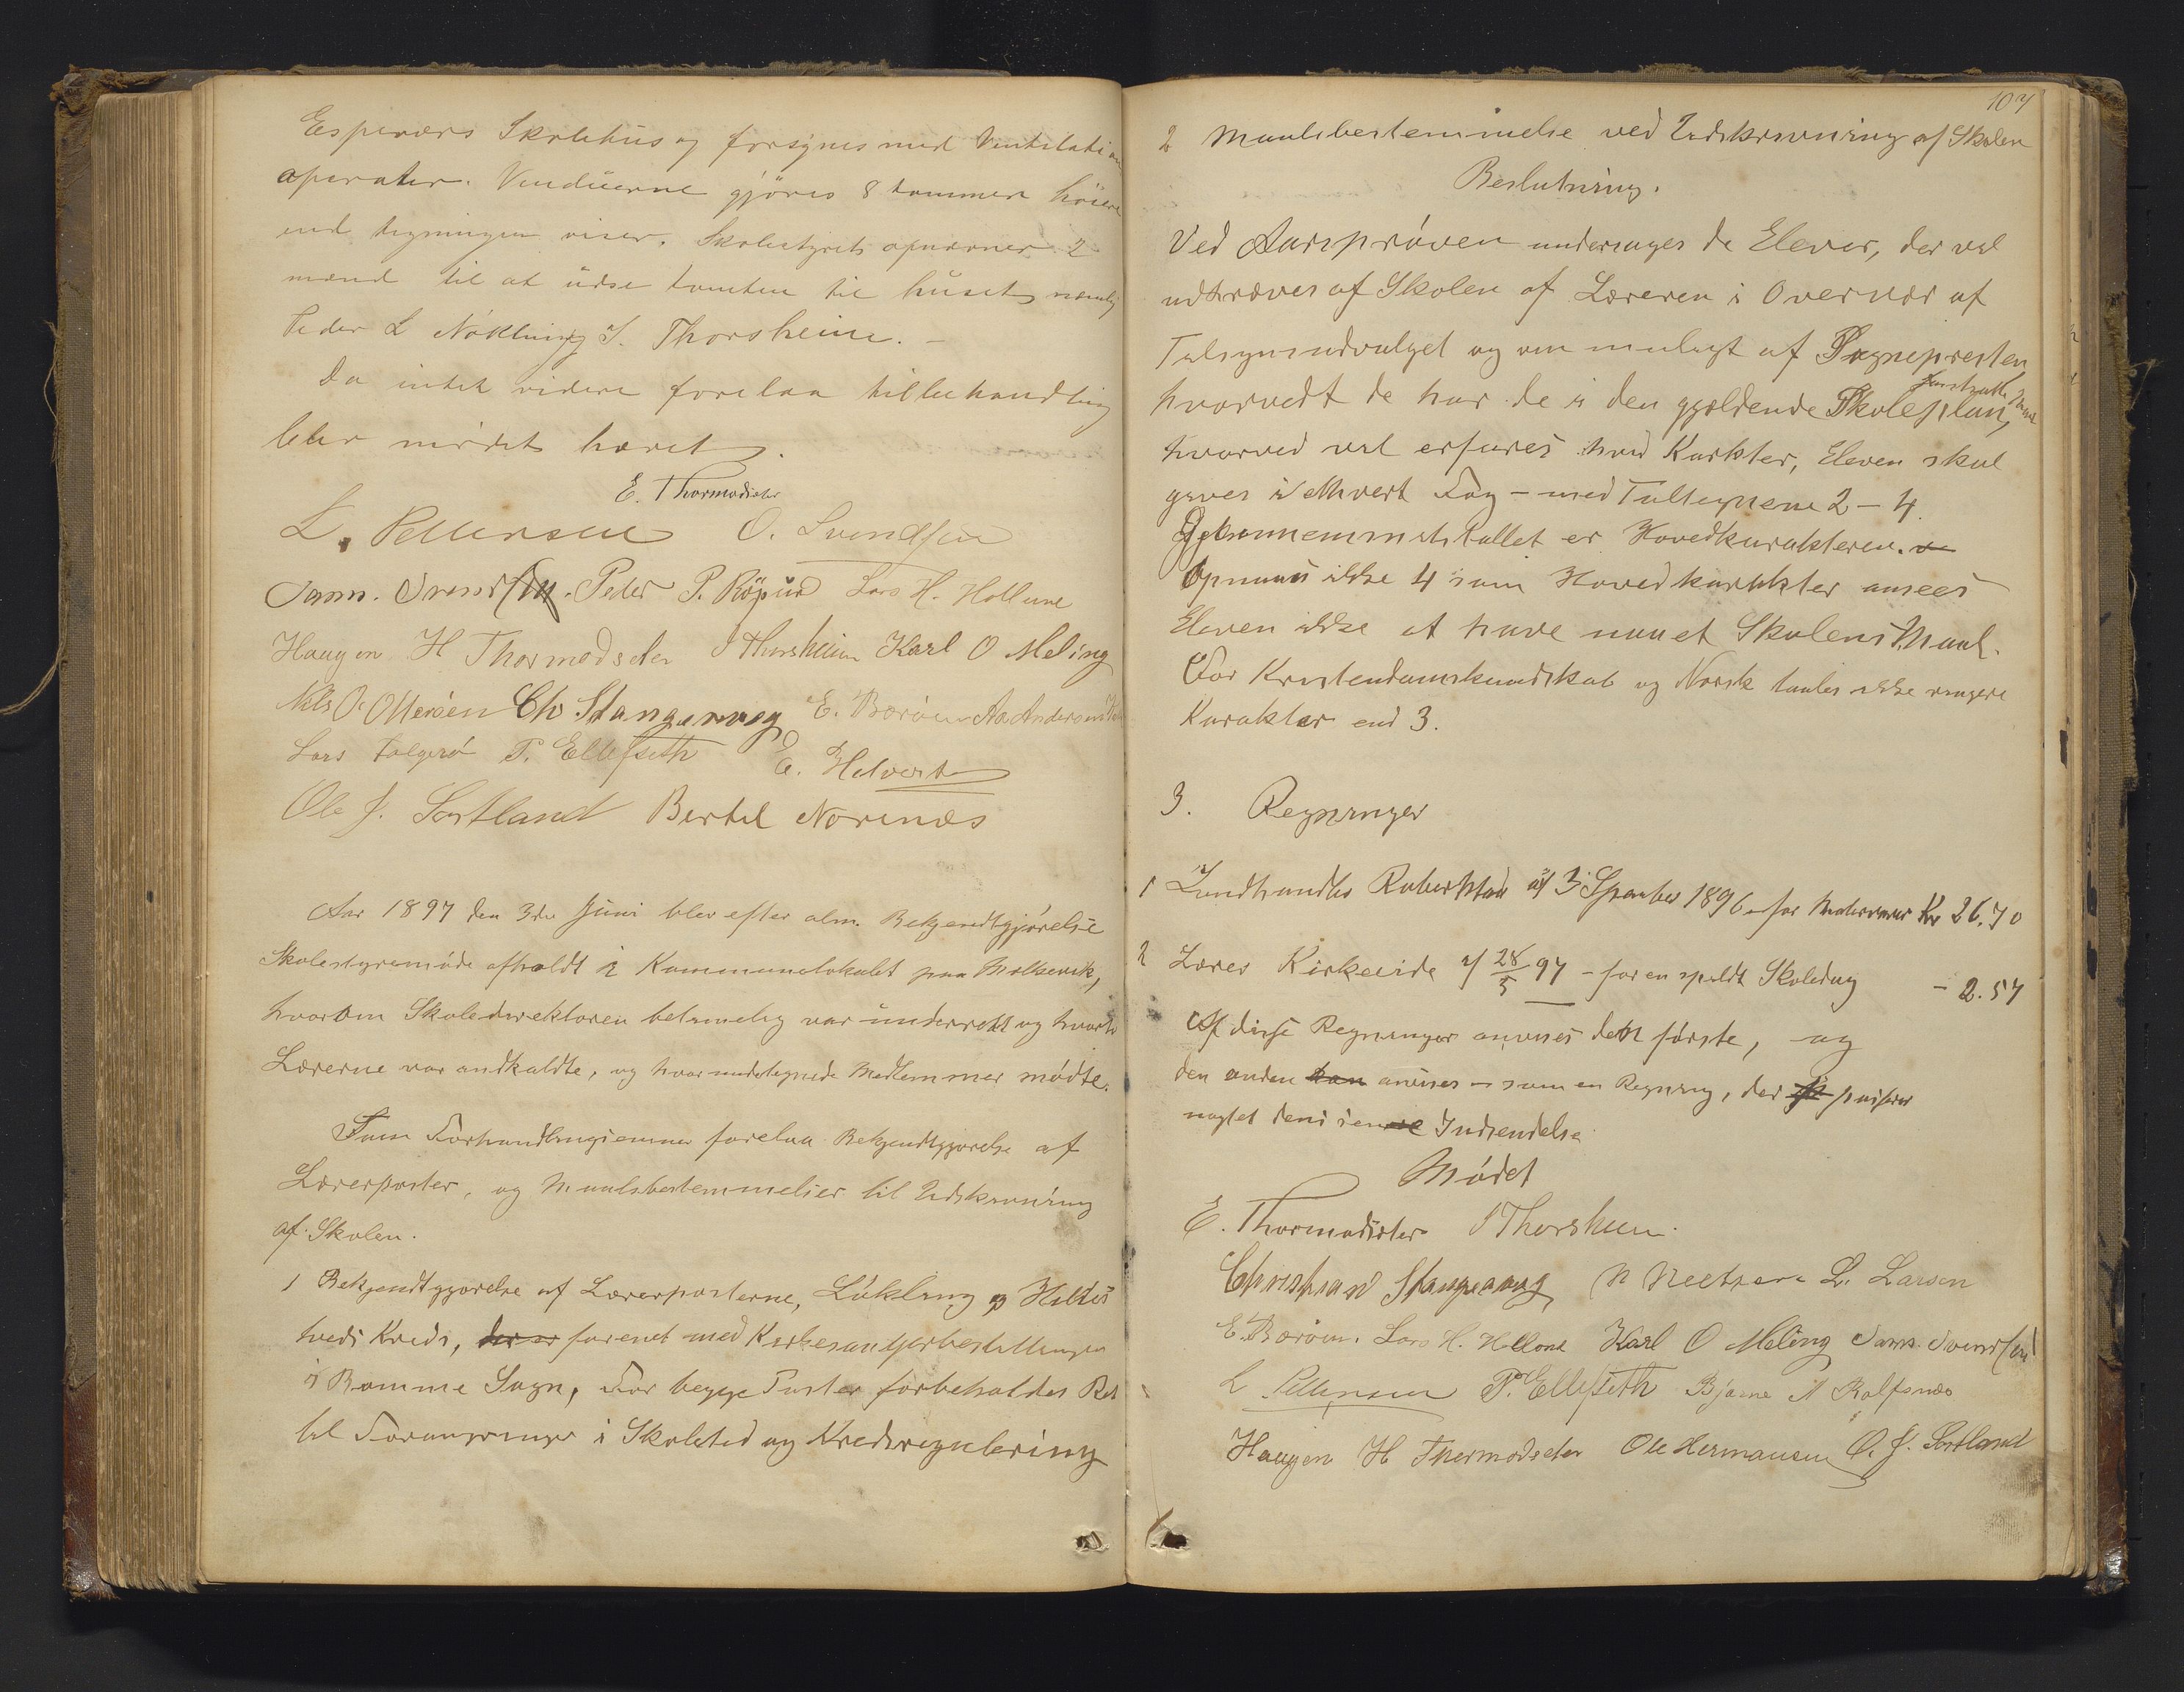 Espeværs Skolehus og forsynes med Ventilations
aperater. Vinduerne gjöres 8 tommer höiere
end tegningen viser. Skolestyret opnævner 2
mænd til at udse tomten til huset nemlig
Peder L Nökling og I. Thorsheim. –
Da intet videre forelaa til behandling
blev mödet hævet.
E. Thormodsæter
L. Pettersen O. Svendsen
Svendsen. Peder P. Röksund Lars H. Hollund
Haagen H Thormodsæter I Thorsheim Karl O Meling
Nils O. Ottersen Chr Stangervaag E. Baröen Aa Andersen
Lars Folgerø P. Ellefseth E. Helvert
Ole J. Sortland Bertel Norenæs
Aar 1897 den 3die Juni blev efter alm. Bekjendtgjörelse
Skolestyremöde afholdt i Kommunelokalet paa Mosterevik,
hvorom Skoledirektoren betimelig var underrettet og hvortil
Lærerne var indkaldte, og hvor undertegnede Medlemmer mödte.
Som Forhandlingsemner forelaa Bekjendtgjörelse af
Lærerposter, og Maalsbestemmelser til Udskrivning
af Skolen.
1 Bekjendtgjörelse af Lærerposterne, Lökling og Hilles
tveds Kreds, der er forenet med Kirkesangerbestillingen
i Bömmo Sogn. For begge Poster forbeholdes Ret
til Forandringer i Skoletid og Kredsregulering
107
2 Maalsbestemmelse ved Udskrivning af Skolen
Beslutning.
Ved Aarspröven undersöges de Elever, der vil
udskrives af Skolen af Læreren i Overvær af
Tilsynsudvalget og om muligt af Sognepresten
hvorvidt de har de i den gjældende Skoleplan, fastsatte Maal
hvorved vil erfares hvad Karkter, Eleven skal
gives i ethvert Fag – med Taltegnene 2 – 4.
Gjennemsnitstallet er Hovedkarakteren.
Opnaaes ikke 4 som Hovedkarakter ansees
Eleven ikke at have naaet Skolens Maal.
For Kristendomskundskab og Norsk taales ikke ringere
Karakter end 3.
3. Regninger
1 Landhandler Robertstad af 3 Septmber 1896 – for Kr 26.70
2 Lærer Kirkeeide af 28/5 97 – for en spildt Skoledag – 2.57
Af disse Regninger anvises den förste, og
den anden kan anvises – som en Regning, der passerer
uagtet dens senere Indsendelse
Mödet
E. Thormodsæter I Thorsheim.
Christian Stangervaag N Neetzen L. Larsen
E. Barøen. Lars H. Hollund Karl O Meling Svendsen
L Pettersen P. Ellefseth Bjarne A Rolfsnes
Haagen H Thormodsæter Ole Hermansen O. J. Sortland